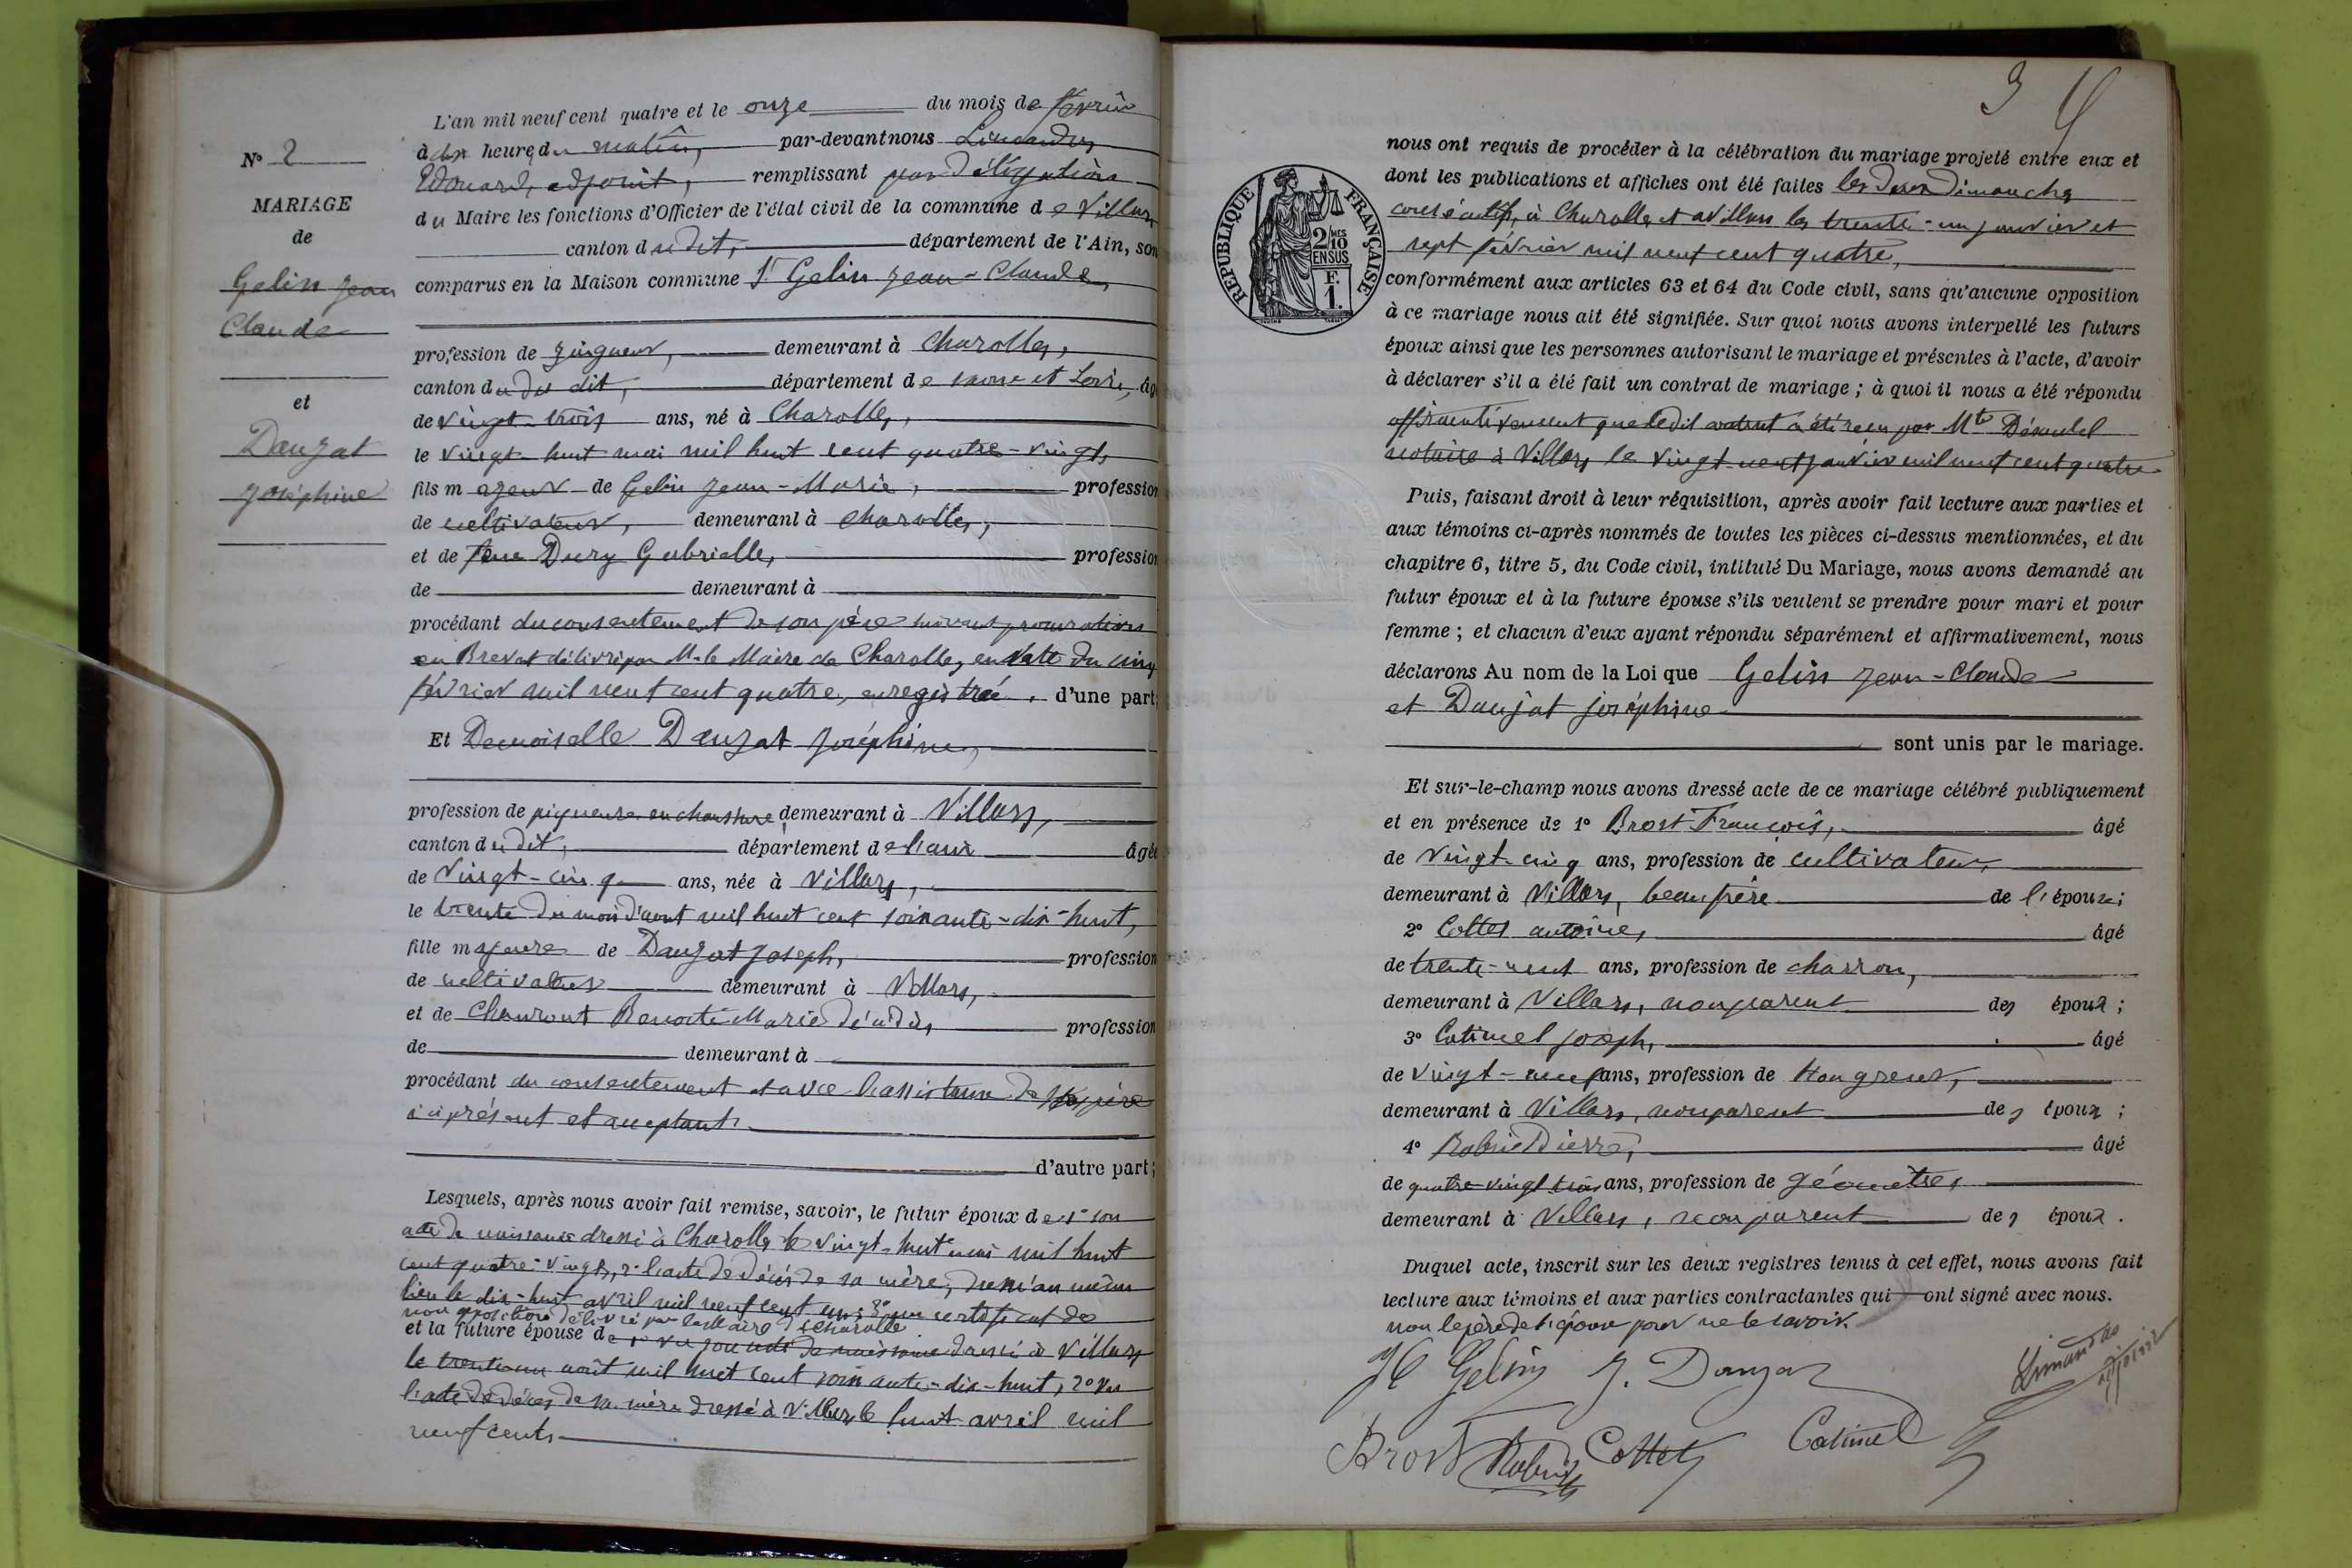 N° 2
MARIAGE
de
Gelin Jean
Claude
et
Dauzat
Joséphine
L'an mil neuf cent quatre et le onze du mois de février
à dix heure du matin, par-devant nous Limandas
Edouard, adjoint, remplissant par délégation
du Maire les fonctions d'Officier de l'état civil de la commune de Villars
canton dudit, département de l'Ain, son
comparus en la Maison commune 1° Gelin Jean-Claude,
profession de zingueur, demeurant à Charolles,
canton du dit, département de saone et Loire, âg
de vingt-trois ans, né à Charolles,
le vingt-huit mai mil huit cent quatre-vingts
fils majeur de Gelin Jean-Marie, profession
de cultivateur, demeurant à Charolles,
et de feue Dury Gabrielle, profession
de demeurant à
procédant du consentement de son père suivant procuration
en Brevet délivré par M. le Maire de Charolles, en date du cinq
février mil neuf cent quatre, enregistrée. d'une part;
Et Demoiselle Dauzat Joséphine,
profession de piqueuse en chaussure demeurant à Villars,
canton dudit, département de l'ain âgée
de vingt-cinq ans, née à Villars,
le trente du mois d'aout mil huit cent soixante-dix-huit,
fille majeure de Dauzat Joseph, profession
de cultivateur demeurant à Villars,
et de Benoite Marie profession
de demeurant à
procédant du consentement et avec l'assistance de père
ci présent et acceptant.
d'autre part;
Lesquels, après nous avoir fait remise, savoir, le futur époux de 1° son
acte de naissance dressé à Charolles le vingt-huit mai mil huit
cent quatre-vingts, 2° l'acte de décès de sa mère, dressé au même
lieu le dix-huit avril mil neuf cent un; 3° un certificat de
non opposition délivré par le Maire de Charolles
et la future épouse de 1° vu son acte de naissance dressé à Villars
le trente un août mil huit cent soixante-dix-huit, 2° vu
l'acte de décès de sa mère dressé à Villars le huit avril mil
neuf cents
3
4
REPUBLIQUE FRANÇAISE
2/10 EN SUS
F. 1.
nous ont requis de procéder à la célébration du mariage projeté entre eux et
dont les publications et affiches ont été faites les deux dimanches
consécutifs, à Charolles et à Villars les trente-un janvier et
sept février mil neuf cent quatre,
conformément aux articles 63 et 64 du Code civil, sans qu'aucune opposition
à ce mariage nous ait été signifiée. Sur quoi nous avons interpellé les futurs
époux ainsi que les personnes autorisant le mariage et présentes à l'acte, d'avoir
à déclarer s'il a été fait un contrat de mariage; à quoi il nous a été répondu
affirmativement que ledit contrat a été reçu par Mte
notaire à Villars le vingt-neuf janvier mil neuf cent quatre
Puis, faisant droit à leur réquisition, après avoir fait lecture aux parties et
aux témoins ci-après nommés de toutes les pièces ci-dessus mentionnées, et du
chapitre 6, titre 5, du Code civil, intitulé Du Mariage, nous avons demandé au
futur époux et à la future épouse s'ils veulent se prendre pour mari et pour
femme; et chacun d'eux ayant répondu séparément et affirmativement, nous
déclarons Au nom de la Loi que Gelin Jean-Claude
et Dauzat Joséphine
sont unis par le mariage.
Et sur-le-champ nous avons dressé acte de ce mariage célébré publiquement
et en présence de 1° Brost François, âgé
de vingt-cinq ans, profession de cultivateur,
demeurant à Villars, beau frère de l'épouse;
2° Cottet antoine, âgé
de trente-neuf ans, profession de charron,
demeurant à Villars, non parent des époux;
3° Catimel Joseph, âgé
de vingt-neuf ans, profession de Hongreur,
demeurant à Villars, non parent des époux;
4° Robin Pierre, âgé
de quatre-vingt trois ans, profession de géomètre,
demeurant à Villars, non parent des époux.
Duquel acte, inscrit sur les deux registres tenus à cet effet, nous avons fait
lecture aux témoins et aux parties contractantes qui ont signé avec nous.
non le père de l'épouse pour ne le savoir.
JC Gelin J. Dauzat
Limandas adjoint
Brost Robin Cottet Catimel